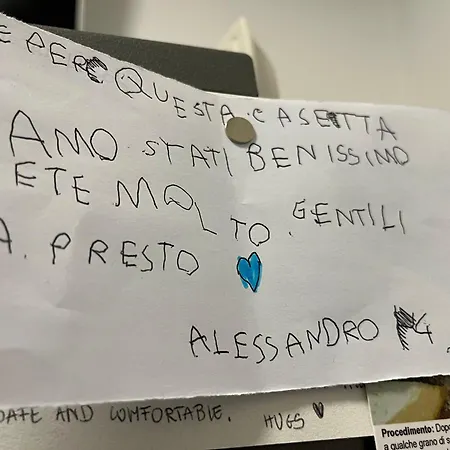 E PER QUESTA CASETTA
AMO STATI BENISSIMO
ETE MOLTO GENTILI
A PRESTO
ALESSANDRO
DATE AND COMFORTABLE. HUGS
Procedimento: Dopo
a qualche grano di s